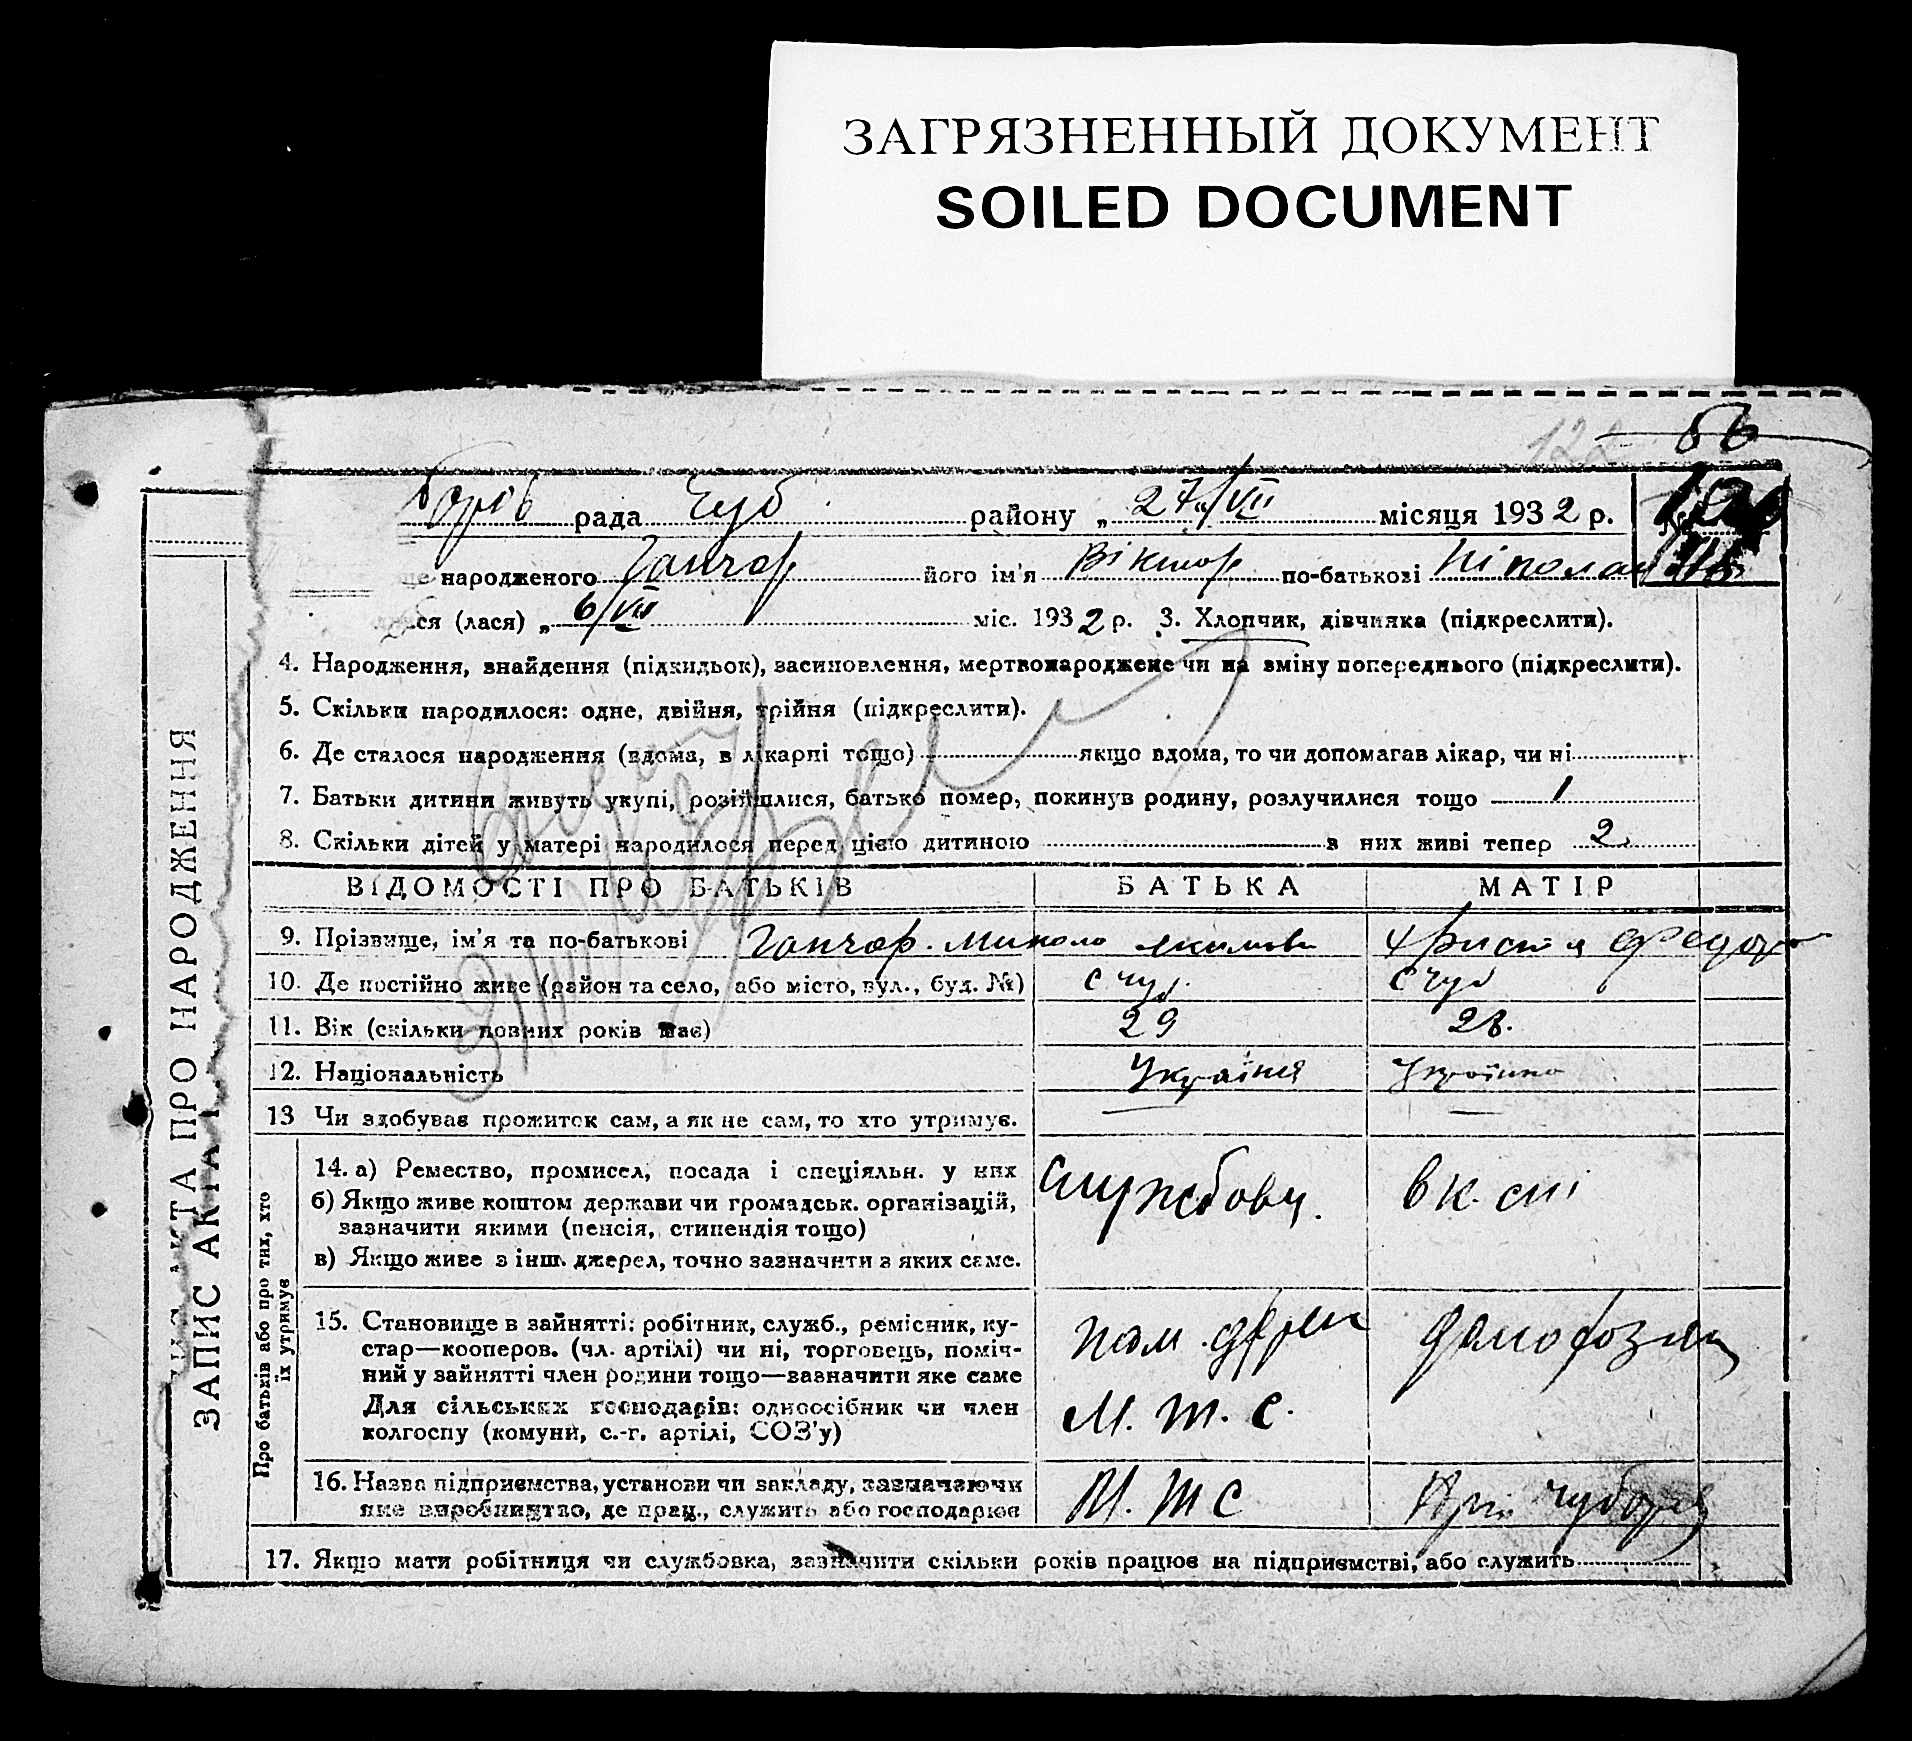 ЗАГРЯЗНЕННЫЙ ДОКУМЕНТ
SOILED DOCUMENT
122 бв
рада Чуб району „27/VII місяця 1932 р.
народженого Ганчар його ім'я Віктор по-батькові
ся (лася) „6/VII міс. 1932 р. 3. Хлопчик, дівчинка (підкреслити).
4. Народження, знайдення (підкидьок), засиновлення, мертвонароджене чи на зміну попереднього (підкреслити).
5. Скільки народилося: одне, двійня, трійня (підкреслити).
6. Де сталося народження (вдома, в лікарні тощо) якщо вдома, то чи допомагав лікар, чи ні
7. Батьки дитини живуть укупі, розійшлися, батько помер, покинув родину, розлучилися тощо 1
8. Скільки дітей у матері народилося перед цією дитиною з них живі тепер 2
ВІДОМОСТІ ПРО БАТЬКІВ БАТЬКА МАТІР
9. Прізвище, ім'я та по-батькові Ганчар Микола Якимови Христя Федор
10. Де постійно живе (район та село, або місто, вул., буд. №) с Чуб. с Чуб
11. Вік (скільки повних років має) 29 28.
12. Національність Україня Україна
13 Чи здобуває прожиток сам, а як не сам, то хто утримує.
14. а) Ремество, промисел, посада і спеціяльн. у них Службовц. в к. сні
б) Якщо живе коштом держави чи громадськ. організацій,
зазначити якими (пенсія, стипендія тощо)
в) Якщо живе з інш. джерел, точно зазначити з яких саме.
15. Становище в зайнятті: робітник, служб., ремісник, ку-
стар—кооперов. (чл. артілі) чи ні, торговець, поміч-
ний у зайнятті член родини тощо—зазначити яке саме
Для сільських господарів: одноосібник чи член
колгоспу (комуни, с.-г. артілі, СОЗ'у)
пом. дирек
М. Т. С.
домохозяй
16. Назва підприємства, установи чи закладу, зазначаючи
яке виробництво, де прац., служить або господарює
М. Т С
17. Якщо мати робітниця чи службовка, зазначити скільки років працює на підприємстві, або служить
Про батьків або про тих, хто
їх утримує
АКТА ПРО НАРОДЖЕННЯ
ЗАПИС АКТА